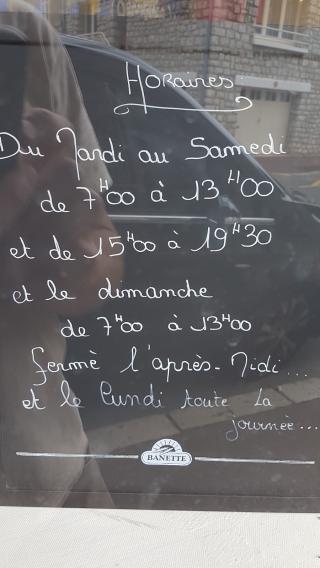 Horaires
Du Mardi au Samedi
de 7H00 à 13H00
et de 15H00 à 19H30
et le dimanche
de 7H00 à 13H00
fermè l'après-Midi...
et le Lundi toute la
journèe...
BANETTE